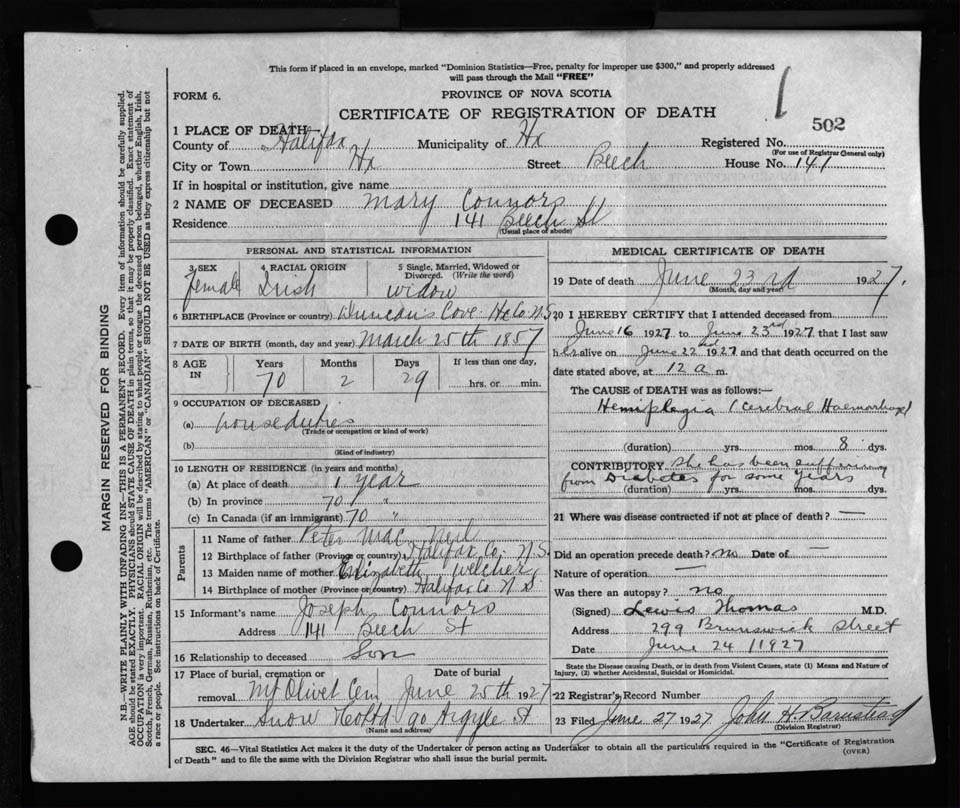 This form if placed in an envelope, marked "Dominion Statistics—Free, penalty for improper use $300," and properly addressed
will pass through the Mail "FREE"
FORM 6.
PROVINCE OF NOVA SCOTIA
CERTIFICATE OF REGISTRATION OF DEATH
502
1 PLACE OF DEATH
County of Halifax Municipality of Hx Registered No.
(For use of Registrar General only)
City or Town Hx Street Beech House No. 141
If in hospital or institution, give name
2 NAME OF DECEASED Mary Connors
Residence 141 Beech St
(Usual place of abode)
PERSONAL AND STATISTICAL INFORMATION
3 SEX female
4 RACIAL ORIGIN Irish
5 Single, Married, Widowed or Divorced. (Write the word) widow
6 BIRTHPLACE (Province or country) Duncan's Cove Hx Co. N.S.
7 DATE OF BIRTH (month, day and year) March 25th 1857
8 AGE IN Years 70 Months 2 Days 29 If less than one day, hrs. or min.
9 OCCUPATION OF DECEASED
(a) house duties
(Trade or occupation or kind of work)
(b)
(Kind of industry)
10 LENGTH OF RESIDENCE (in years and months)
(a) At place of death 1 year
(b) In province 70 "
(c) In Canada (if an immigrant) 70 "
Parents
11 Name of father Peter Mac Neil
12 Birthplace of father (Province or country) Halifax Co. N.S.
13 Maiden name of mother Elizabeth Welcher
14 Birthplace of mother (Province or country) Halifax Co N S
15 Informant's name Joseph Connors
Address 141 Beech St
16 Relationship to deceased Son
17 Place of burial, cremation or removal Mt Olivet Cem Date of burial June 25th 1927
18 Undertaker Snow & Co Ltd 90 Argyle St
(Name and address)
MEDICAL CERTIFICATE OF DEATH
19 Date of death June 23rd 1927.
(Month, day and year)
20 I HEREBY CERTIFY that I attended deceased from
June 16 1927 to June 23rd 1927 that I last saw
her alive on June 22nd 1927 and that death occurred on the
date stated above, at 12 a m.
The CAUSE of DEATH was as follows:
Hemiplegia (Cerebral Haemorrhage)
(duration) yrs. mos. 8 dys.
CONTRIBUTORY She has been suffering
from Diabetes for some years
(duration) yrs. mos. dys.
21 Where was disease contracted if not at place of death? —
Did an operation precede death? no Date of —
Nature of operation —
Was there an autopsy? no
(Signed) Lewis Thomas M.D.
Address 299 Brunswick Street
Date June 24 1927
State the Disease causing Death, or in death from Violent Causes, state (1) Means and Nature of
Injury, (2) whether Accidental, Suicidal or Homicidal.
22 Registrar's Record Number
23 Filed June 27 1927 John H. Barnstead
(Division Registrar)
SEC. 46—Vital Statistics Act makes it the duty of the Undertaker or person acting as Undertaker to obtain all the particulars required in the "Certificate of Registration
of Death" and to file the same with the Division Registrar who shall issue the burial permit.
(OVER)
MARGIN RESERVED FOR BINDING
N.B.—WRITE PLAINLY WITH UNFADING INK—THIS IS A PERMANENT RECORD. Every item of information should be carefully supplied.
AGE should be stated EXACTLY. PHYSICIANS should STATE CAUSE OF DEATH in plain terms, so that it may be properly classified. Exact statement of
OCCUPATION is very important. RACIAL ORIGIN will be described by stating to what people or tongue the deceased person belonged, whether English, Irish,
Scotch, French, German, Russian, Ruthenian, etc. The terms "AMERICAN" or "CANADIAN" SHOULD NOT BE USED as they express citizenship but not
a race or people. See instructions on back of Certificate.